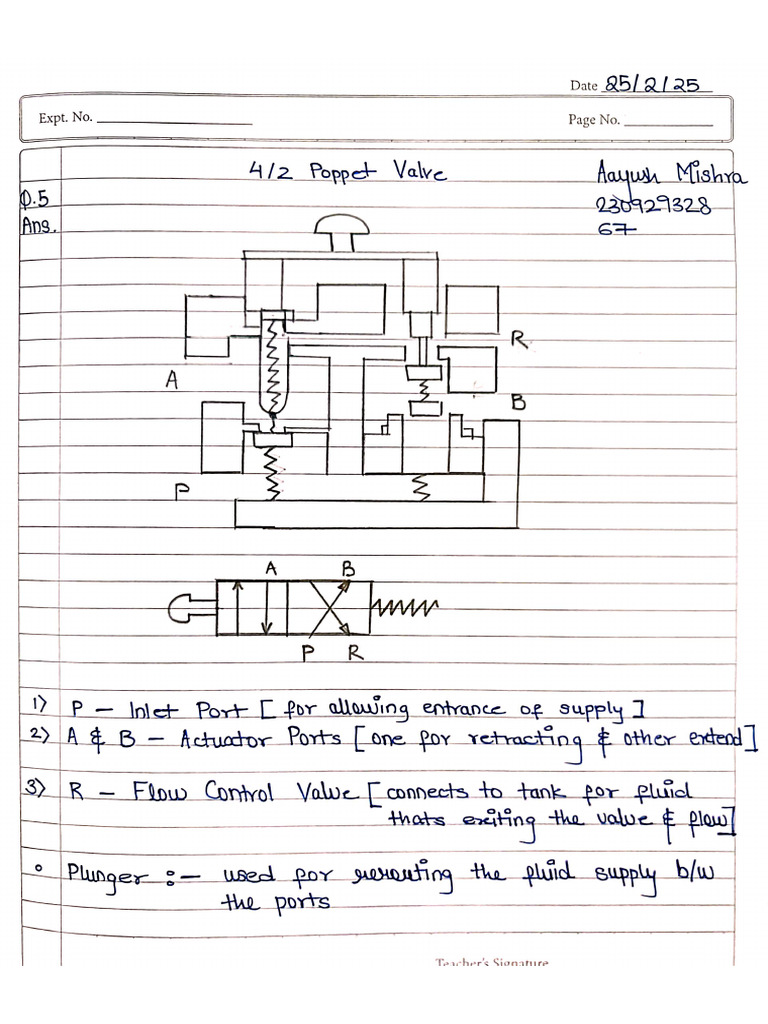 Date 25/2/25
Expt. No.
Page No.
4/2 Poppet Valve
Aayush Mishra
Q.5
230929328
Ans.
67
R
A
B
P
A B
P R
1) P – Inlet Port [for allowing entrance of supply]
2) A & B – Actuator Ports [one for retracting & other extend]
3) R – Flow Control Valve [connects to tank for fluid
thats exiting the valve & flow]
° Plunger :– used for rerouting the fluid supply b/w
the ports
Teacher's Signature